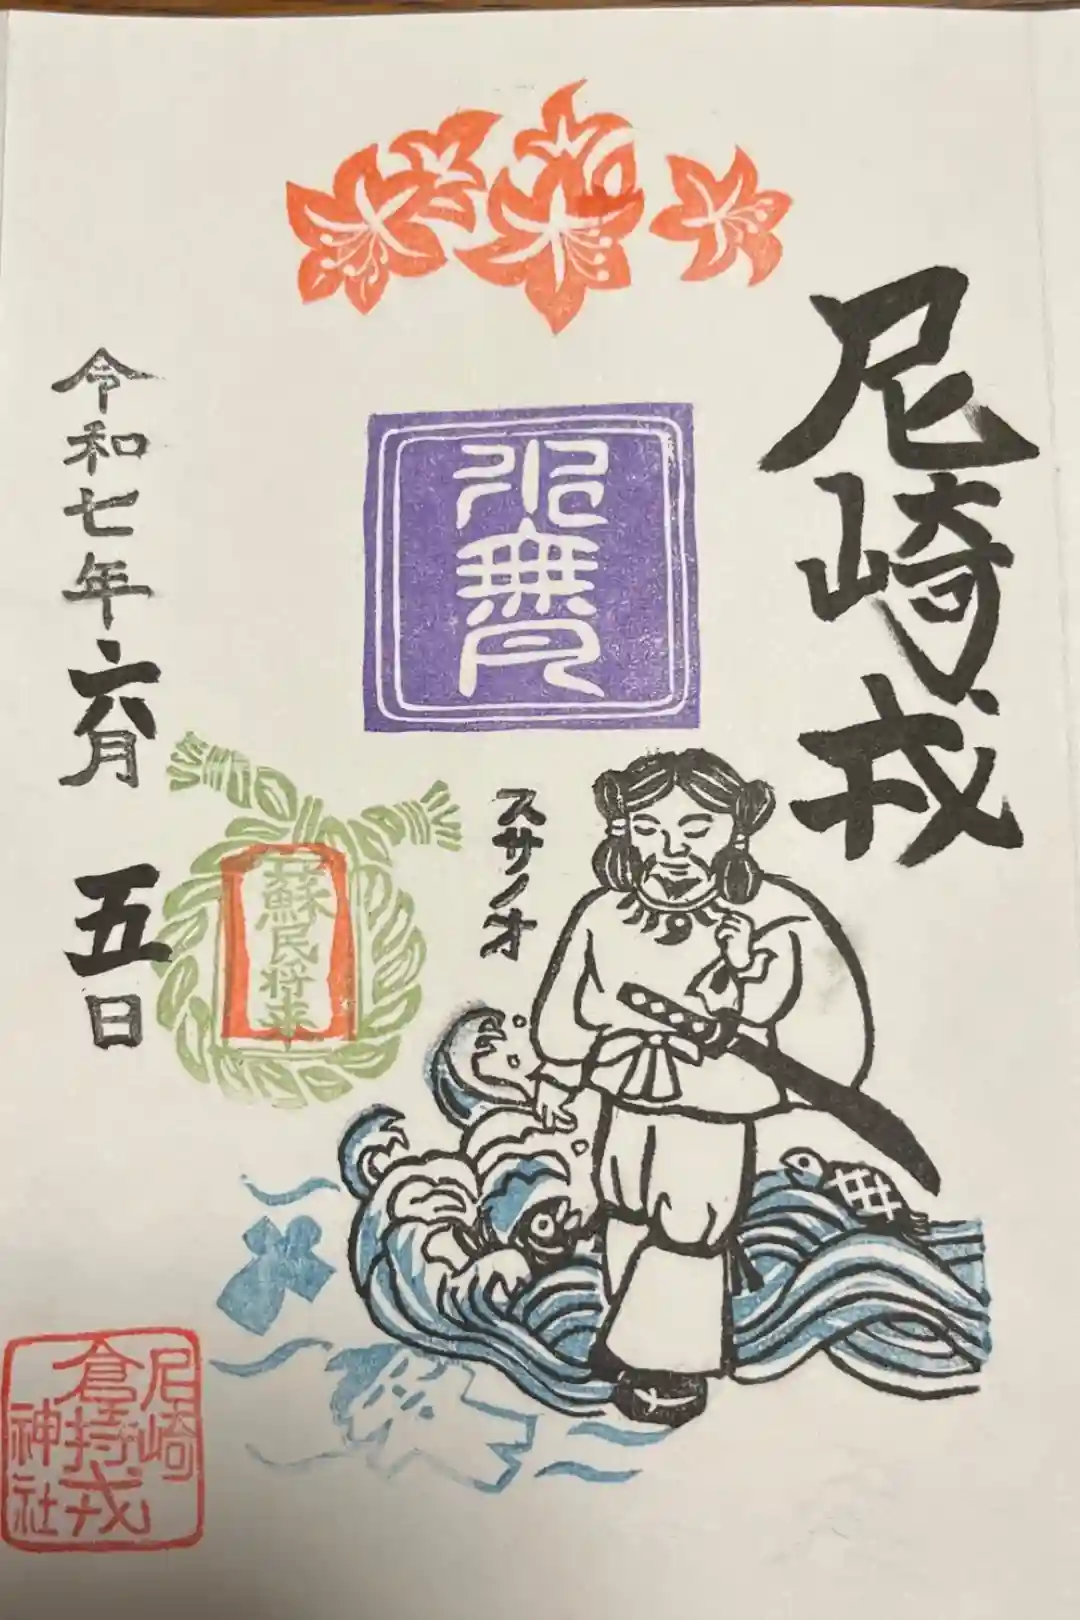 尼崎戎
水無月
スサノオ
蘇民将来
令和七年六月 五日
尼崎
倉持戎
神社